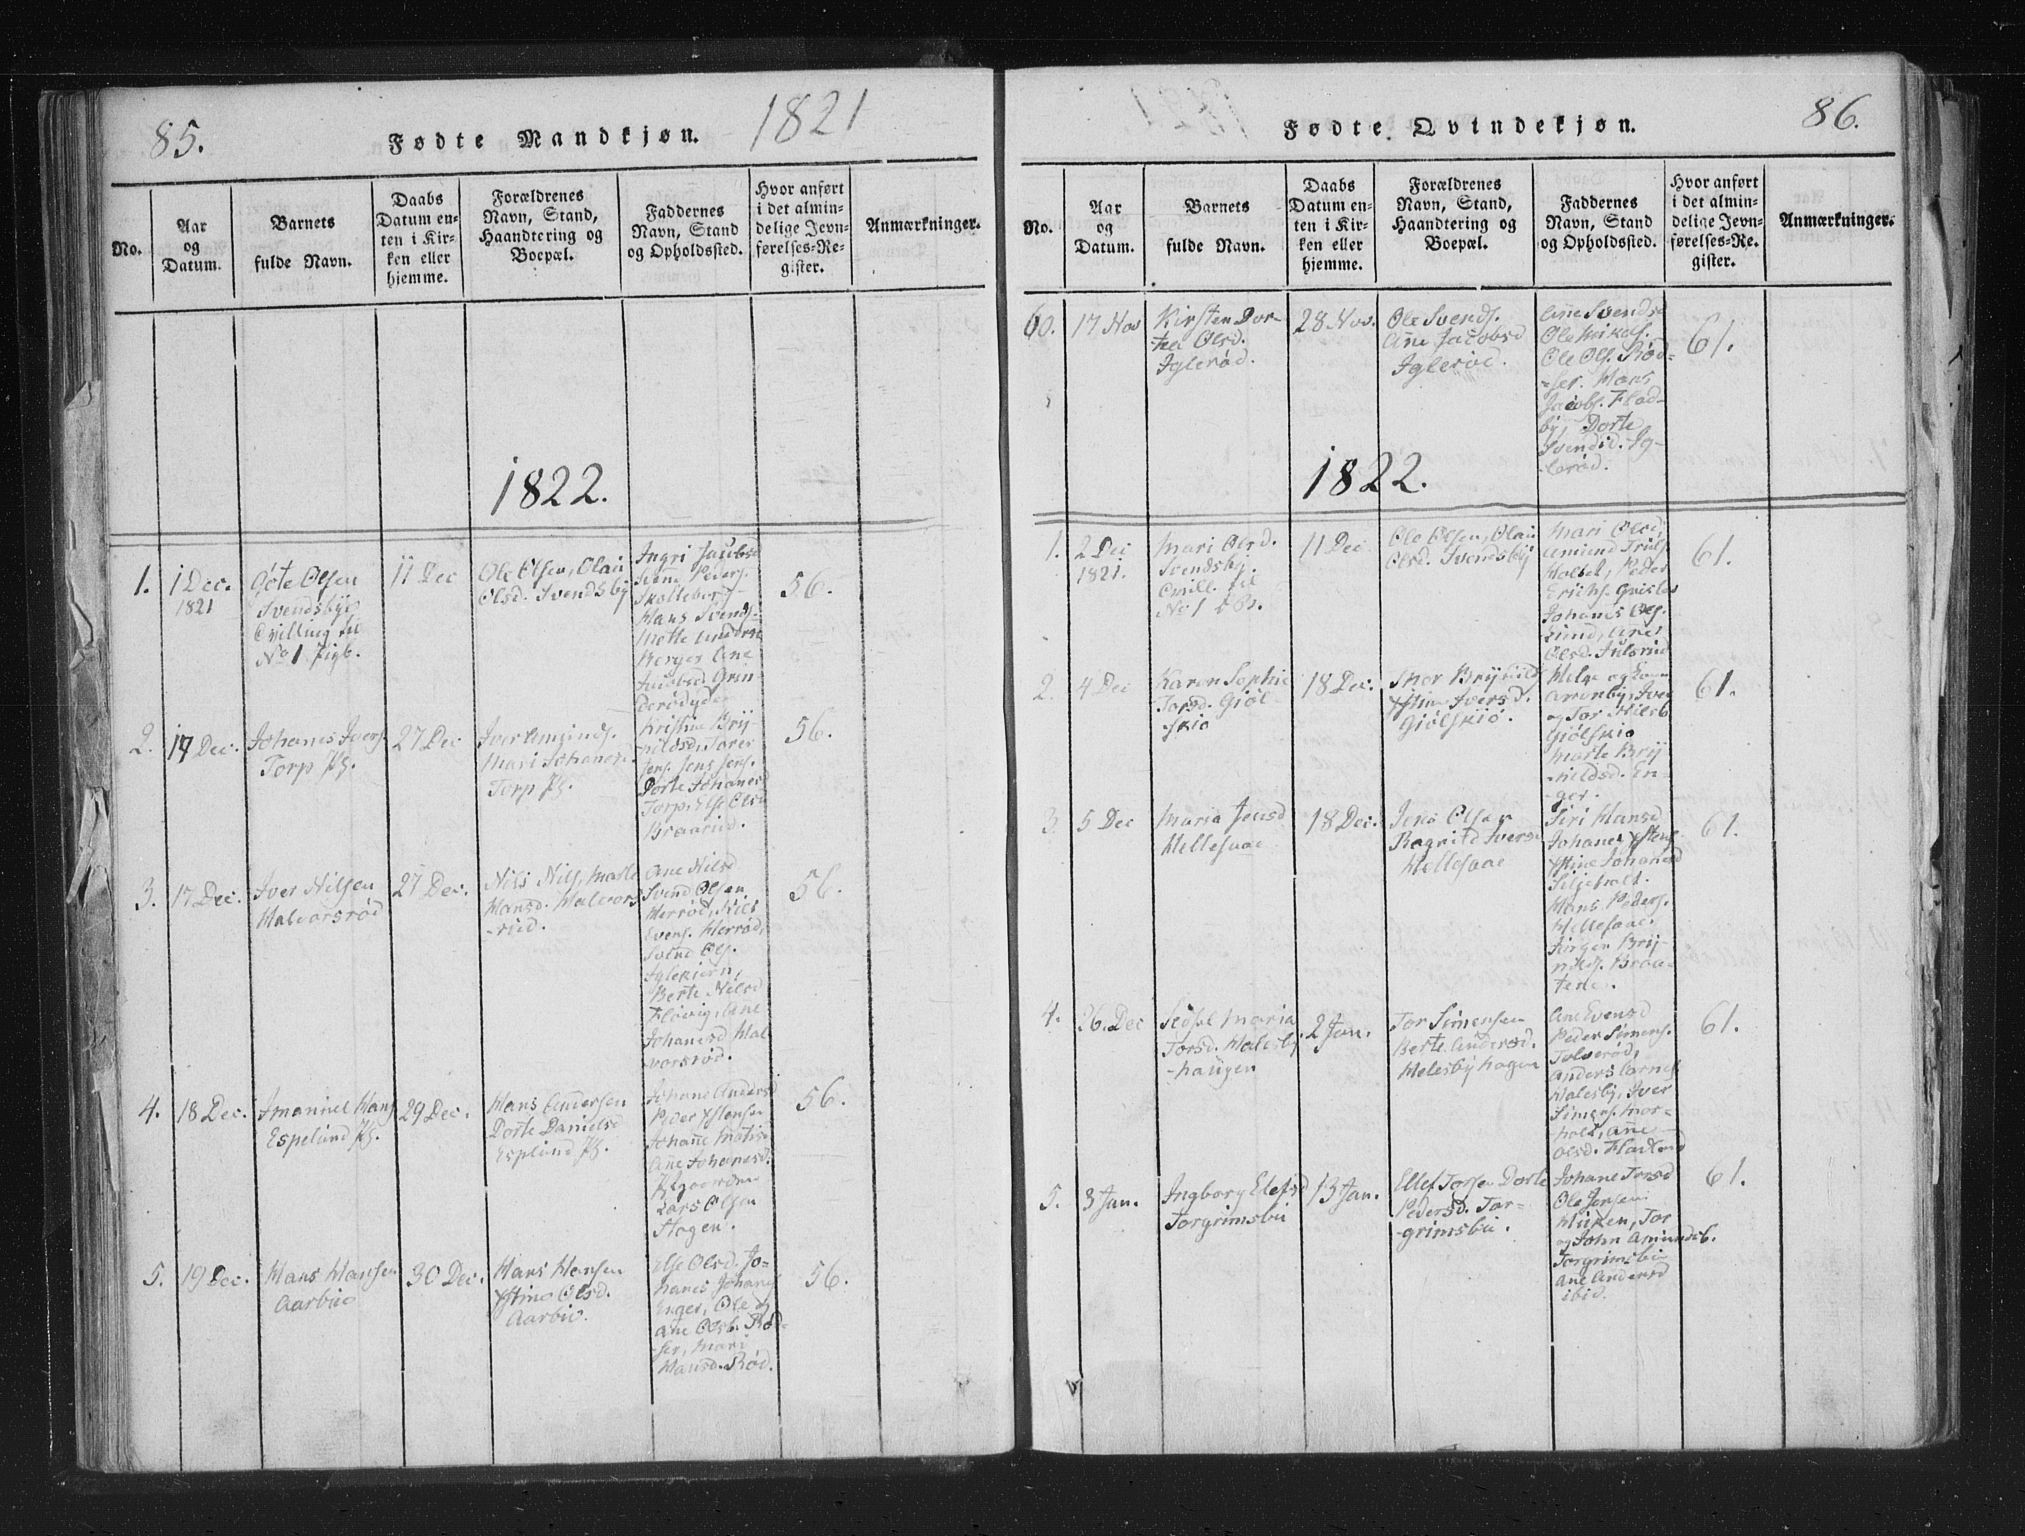 85.
Fødte Mandkjøn.
1821
No.
Aar
og
Datum.
Barnets
fulde Navn.
Daabs
Datum en-
ten i Kir-
ken eller
hjemme.
Forældrenes
Navn, Stand,
Haandtering og
Boepæl.
Faddernes
Navn, Stand
og Opholdssted.
Hvor anført
i det almin-
delige Jevn-
førelses-Re-
gister.
Anmærkninger.
1822.
1.
1 Dec.
1821
Gøte Olsen
Svendsbye
Tvilling til
No 1. Pigb.
11 Dec
Ole Olsen, Olau
Olsd. Svendsby
Ingri Jacobsd
Svend Peders.
Skotteberg
Hans Svends.
Berger Ane
Jacobsd. Grin-
derødgde
56.
2.
17 Dec.
Johanes Ivers.
Torp Pg.
27 Dec
Iver Amunds.
Mari Johanesd.
Torp Pg.
Kristine Bry-
nildsd, Torer
Jens. Jens Jens.
Dorte Johanesd
Torp, Else Olsd
Braarud.
56.
3.
17 Dec.
Iver Nilsen
Halvorsrød
27 Dec.
Nils Nils, Marte
Hansd. Halvors
-rød.
Ane Nilsd
Svend Olsen
Herrød, Nils
Evens. Herrød,
Svend Ols.
Iglekiern,
Berte Nilsd
Fløvig, Ane
Johanesd Hal
vorsrød.
56.
4.
18 Dec.
Imanuel Hans
Espelund Pg.
29 Dec.
Hans Andersen
Dorte Danielsd
Esplund Pg.
Johane Andersd
Peder
Johane Matisd
Ane Johanesd.
Pgaarden
Lars Olsen
Hagen.
56.
5.
19 Dec.
Hans Hansen
Aarbue
30 Dec.
Hans Hansen
Olsd.
Aarbue.
Else Olsd. Jo-
hanes Johans
Enger, Ole og
Ane Olsb. Rød-
ser, Mari
Hansd. Rød.
56.
86.
Fødte Qvindekjøn.
No.
Aar
og
Datum.
Barnets
fulde Navn.
Daabs
Datum en-
ten i Kir-
ken eller
hjemme.
Forældrenes
Navn, Stand,
Haandtering og
Boepæl.
Faddernes
Navn, Stand
og Opholdssted.
Hvor anført
i det almin-
delige Jevn-
førelses-Re-
gister.
Anmærkninger.
60.
17 Nov
Kirsten Dor-
tea Olsd.
Iglerød.
28 Nov.
Ole Svends.
Ane Jacobsd
Iglerød.
Ane Svendsd
Ole
Ole Ols. Rød-
-ser. Hans
Jacobs. Flad-
by, Dorte
Svendsd. Ig-
lerød.
61.
1822.
1.
2 Dec
1821.
Mari Olsd.
Svendsby.
Tvill. til
No 1
11 Dec
Ole Olsen, Olau
Olsd. Svendsby
Mari Olsd,
Amund Truls.
Holbek, Peder
Erichs.
Johanes Ols.
Lund, Ane
Olsd. Julsrud
61.
2.
4 Dec
Karen Sophie
Torsd. Giøl-
skiø
18 Dec.
Thor Brynilds
Iversd.
Giølskiø.
Helge og
Arnnby, Iver
og Tor Nilsb
Giølskiø
Marte Bry
-nildsd. En-
-ger.
61.
3.
5 Dec
Maria Jensd
Hellesaae
18 Dec.
Jens Olsen
Ragnild Iversd
Hellesaae
Siri Hansd
Johanes
Johanesd
Siljeholt.
Hans Peders.
Hellesaae.
Jørgen Bry-
nilds. Braa-
tene.
61.
4.
26. Dec
Sidsel Maria
Torsd. Halesby
-haugen
2 Jan.
Tor Simensen
Berte Andersd.
Helesbyhagen
Ane Evensd
Peder Simens.
Tolverød,
Anders Larns
Halesby, Iver
Simens. Mor-
holt, Ane
Olsd. Fladlund
61.
5.
3 Jan.
Ingborg Elefsd
Torgrimsbu
13 Jan.
Ellef Torsen Dorte
Pedersd. Tor-
-grimsbu.
Johane Torsd
Ole Jensen
Huken, Tor
og John Amundsb.
Torgrimsbu
Ane Andersd
ibid.
61.